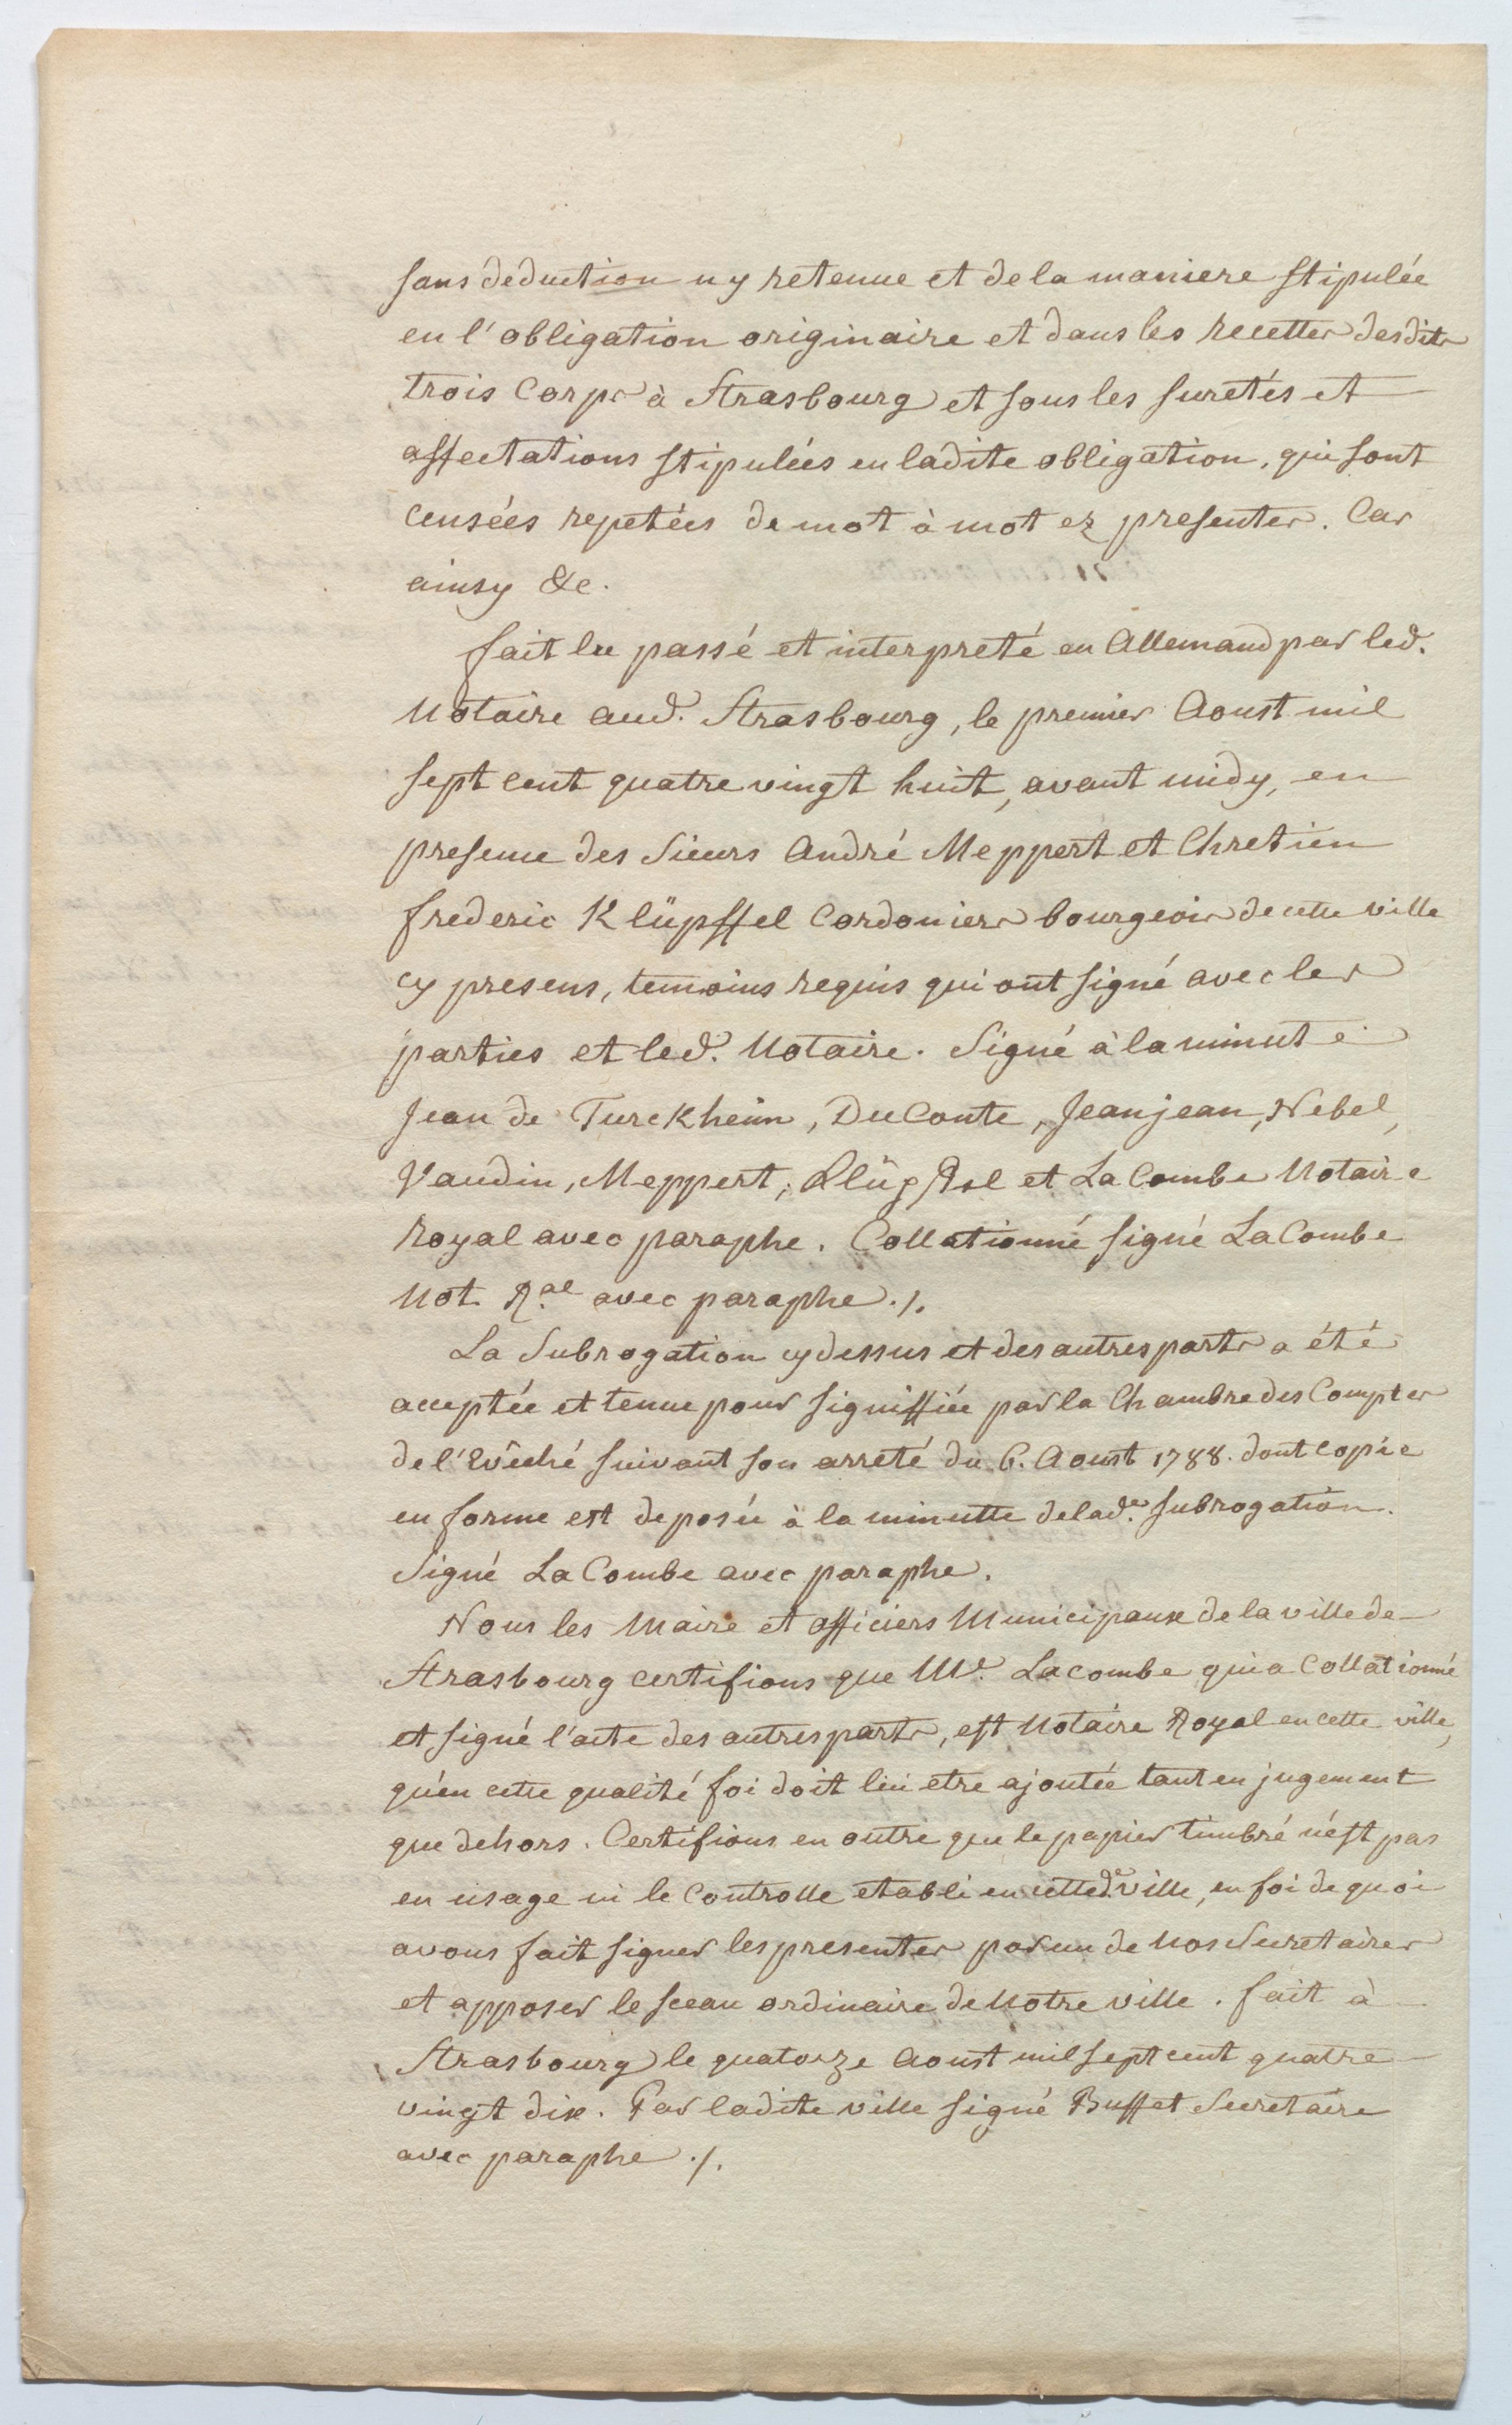 sans deduction ny retenue et de la maniere stipulée
en l'obligation originaire et dans les recettes desdits
trois Corps à Strasbourg et sous les suretés et
affectations stipulées en ladite obligation, qui sont
censées repetées de mot à mot ez presentes. Car
ainsy &c.
fait lu passé et interpreté en Allemand par led.
Notaire aud. Strasbourg, le premier Aoust mil
sept cent quatre vingt huit, avant midy, en
presence des Sieurs André Meppert et Chretien
frederic Klüpffel Cordoniers bourgeois de cette ville
cy presens, temoins requis qui ont signé avec les
parties et led. Notaire. Signé à la minute
Jean de Turckheim, DuConte, Jeanjean, Nebel,
Vaudin, Meppert, Klüpffel et La Combe Notaire
Royal avec paraphe. Collationné signé La Combe
Not. Ral avec paraphe ./.
La Subrogation cy dessus et des autres parts a été
acceptée et tenue pour signiffiée par la Chambre des Comptes
de l'Evêché suivant son arreté du 6. Aoust 1788. dont copie
en forme est deposée à la minutte de lade. subrogation.
Signé La Combe avec paraphe.
Nous les Maire et officiers Municipaux de la ville de
Strasbourg certifions que Me. Lacombe qui a Collationné
et signé l'acte des autres parts, est Notaire Royal en cette ville,
qu'en cette qualité foi doit lui etre ajoutée tant en jugement
que dehors. Certifions en outre que le papier timbré n'est pas
en usage ni le Controlle etabli en cetted.e ville, en foi de quoi
avons fait signer les presentes par un de Nos Secretaires
et apposer le sceau ordinaire de Notre ville. fait à
Strasbourg le quatorze Aoust mil sept cent quatre
vingt dix. Par ladite ville signé Buffet Secretaire
avec paraphe ./.